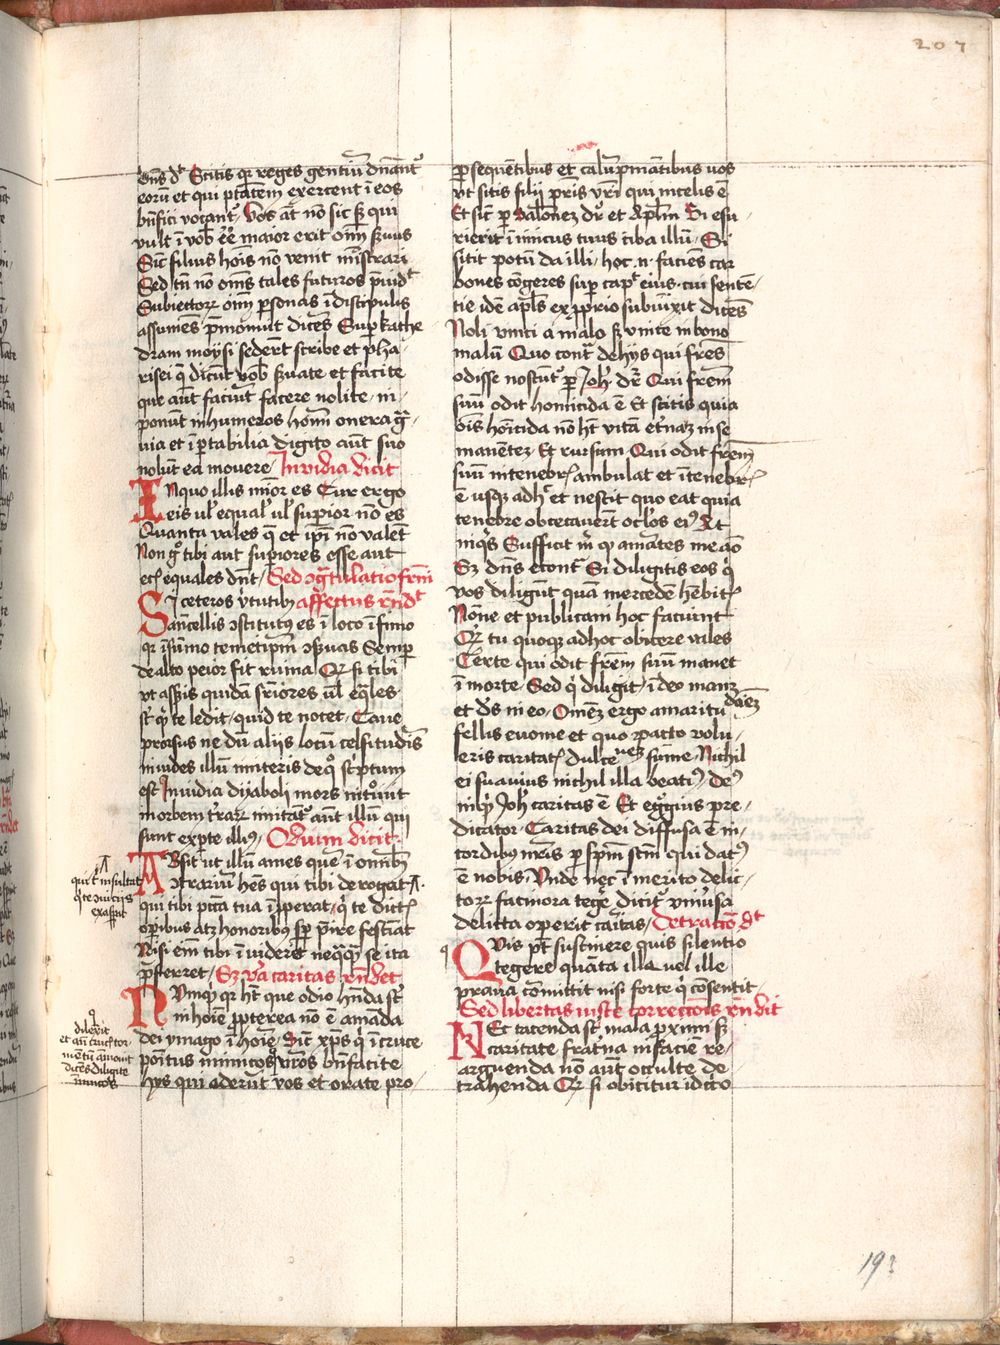 207
dn̄s dt Scitis qr reges gentiū dn̄ant᷑
eorū et qui ptātem exercent ī eos
bn̄fici vocant᷑ Vos āt nō sic sꝫ qui
vult ī vob̄ eē maior erit om̄ ẜuus
Sic̄ filius hoīs nō venit mīstrari
Sed tn̄ nō om̄s tales futuros p̄uidt
Subiectorꝝ om̄ ꝑsonas ī discipulis
assumēs p̄monuit dicēs Suꝑ kathe
dram moysi sederūt scribe et pha
risei q̄ dicūt vob̄ ẜuate et facite
que aūt faciūt facere nolite, in
ponūt in humeros hom̄ onera gͣ
uia et īportabilia digito aūt suo
nolūt ea mouere, Invidia dicit
In quo illis mīor es Cur ergo
eis ul̓ equal̓ ul̓ suꝑior nō es
Quanta vales q̄ et ip̄i nō valēt
Non gͦ tibi aut suꝑiores esse aut
ecī equales dn̄t, Sed ꝯgͣtulatio frn̄i
Si ceteros v̓tutibꝫ affectus rn̄dt
an̄cellis ꝯstitutꝰ es ī loco īfimo
qr īsūmo temetip̄m ꝯẜuas Semꝑ
de alto peior fit ruina Qr si tibi
vt asseris quidā suꝑiores ul̓ eq̄les
sͭ qͥ te ledit, quid te nocet, Caue
prorsus ne dū aliis locū celsitudīs
inuides illū imiteris de qͦ scͥptum
est Inuidia dyaboli mors intͦiuit
in orbem tr̓arꝝ imitāt᷑ aūt illū qui
sunt ex ꝑte illiꝰ, Odium dicit
Absit ut illū ames quē ī omībꝫ
ꝯtrariū hēs qui tibi derogat A
qui tibi pctā tua īꝓperat, qͥ te dictis
oꝑibus atꝫ honoribus sꝑ p̄ire festīat
Nisi em̄ tibi īuideret neqͣqͣꝫ se ita
p̄ferret, Sꝫ v̓a caritas rn̄det
Nūnqͥd qr hn̄t que odio hn̄da sͭ
in hoīe ꝓpterea nō ē amāda
dei ymago ī hoīe Sic̄ xp̄s qͥ ī cruce
poītus inimicos vr̄os bn̄facite
hys qui oderūt vos et orate pro
A
qui t̄ insultat
qͥ te ꝯuiciis
exasꝑat
dilexit
et an̄ crucis tor
mētū āmonuit
dicēs diligite
inimicos
ꝑsequētibus et calūpniātibus vos
vt sitis filij pr̄is vr̄i qui in celis ē
Et sic̄ ꝑ Salonez dr̄ et Apl̄m Si esu
rierit īnimicus tuus ciba illū, Si
sitit potū da illi, hoc .n. faciēs car
bones cōgeres suꝑ capt̄ eius, cui sentē
tie idē apl̄s ex ꝓprio subiūxit dicēs
Noli vinci a malo sꝫ vince in bono
malū Quo contͣ de hys qui fr̄es
odisse noscūt᷑ ꝑ Joh̓ dr̄ Qui frēm
suū odit homicida ē Et scitis quia
oīs hōicida nō ht vitā et̓naꝫ in se
manētez, Et rursum, Qui odit frēm
suū in tenebrꝭ ambulat et ī tenebrꝭ
ē usqꝫ adhͨ et nescit quo eat quia
tenebre obcecauerūt oculos eiꝰ At
inqͥs Sufficit m̄ qꝫ amātes me aō
Sꝫ dn̄s econtͣ Si diligitis eos qͥ
vos diligūt quā mercedē hēbitꝭ
Nōne et publicani hoc faciunt
Qr tu quoqꝫ ad hoc obicere vales
Certe qui odit frēm suū manet
ī morte, Sed qͥ diligit, ī deo manꝫ
et ds̄ in eo, Omēꝫ ergo amaritudīeꝫ
fellis euome et quo pacto volu
leris caritatꝭ dulcenez sume, Nichil
ei suauius nichil illa beatiꝰ Deꝰ
inqͥt Joh̓ caritas ē Et egͣgius pre
dicator Caritas dei diffusa ē in
cordibus nr̄is ꝑ sp̄m scm̄ qui datꝰ
ē nobis, Vnde nec īmerito delic
torꝝ facinora tege dicit᷑ vniūsa
delicta operit caritas, Detractiō dt
Quis pt̄ sustinere quis silentio
tegere quāta illa uel ille
praua cōmittit nisi forte qͥ cōsentit
Sed libertas iuste correctiōis rn̄dit
Nec tacenda sͭ mala ꝓximi sꝫ
caritate frat̓na in faciē re
arguenda nō aūt occulte de
trahenda Qr si obicitur idcīo
193